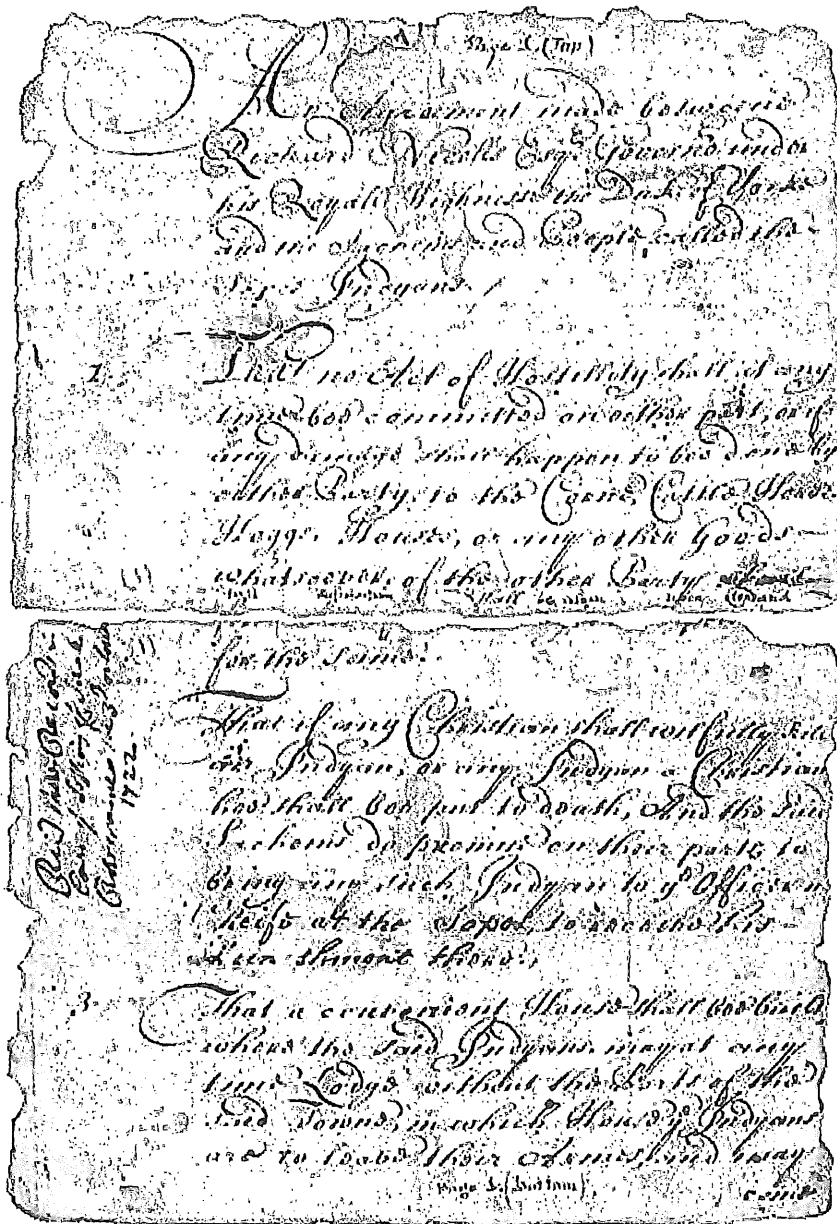 Page 1 (Top)
An Agreement made betweene
Richard Nicolls Esqr. Governor under
his Royall Highnesse the Duke of Yorke
and the Sachems and People called the
Sopes Indyans.
1 That no Act of Hostillity shall at any
time bee committed on either part, or if
any damage shall happen to bee done by
either Party, to the Corne, Cattle, Horses
Hoggs, Houses, or any other Goods
whatsoever of the other Party
full shall be given upon demand
for the same.
That if any Christian shall wilfully kill
an Indyan, or any Indyan a Christian
hee shall bee put to death, And the said
Sachems do promise on their parts to
bring any such Indyan to ye Officer in
cheife at the Sopes, to receive his
Punishment there.
3 That a convenient House shall bee built
where the said Indyans may at any
time Lodge without the Ports of the
said Towne, in which House ye Indyans
are to leave their Armes and may
Page 1 (bottom)
come
1722